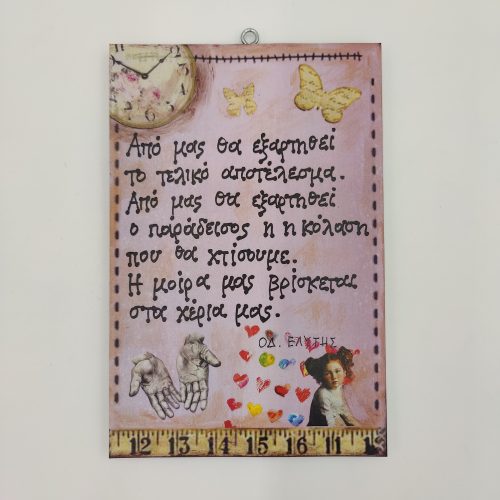 Από μας θα εξαρτηθεί
το τελικό αποτέλεσμα.
Από μας θα εξαρτηθεί
ο παράδεισος η η κόλαση
που θα χτίσουμε.
Η μοίρα μας βρίσκεται
στα χέρια μας.
ΟΔ. ΕΛΥΤΗΣ
12 13 14 15 16 11